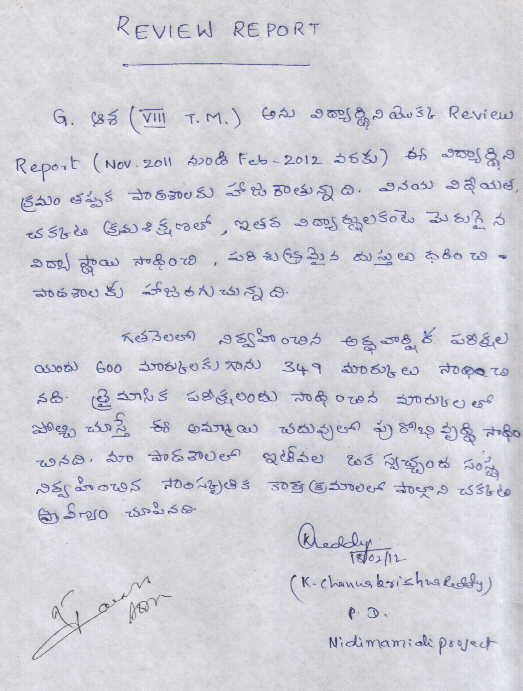 REVIEW REPORT
G. ఆశ (VIII T.M.) అను విద్యార్థిని యొక్క Review
Report (Nov. 2011 నుండి Feb-2012 వరకు) ఈ విద్యార్థిని
క్రమం తప్పక పాఠశాలకు హాజరౌతున్నది. వినయ విధేయత,
చక్కటి క్రమశిక్షణతో, ఇతర విద్యార్థులకంటె మెరుగైన
విద్యా స్థాయి సాధించి, పరిశుభ్రమైన దుస్తులు ధరించి -
పాఠశాలకు హాజరగుచున్నది.
గతనెలలో నిర్వహించిన అర్థవార్షిక పరీక్షల
యందు 600 మార్కులకు గాను 349 మార్కులు సాధించి
నది. త్రైమాసిక పరీక్షలందు సాధించిన మార్కులతో
పోల్చి చూస్తే ఈ అమ్మాయి చదువులో పురోభివృద్ధి సాధిం
చినది. మా పాఠశాలలో ఇటీవల ఒక స్వచ్ఛంద సంస్థ
నిర్వహించిన సాంస్కృతిక కార్యక్రమాలలో పాల్గొని చక్కటి
ప్రావీణ్యం చూపినది.
KReddy
18/02/12
(K. Channakrishna Reddy)
P. D.
Nidimamidi project